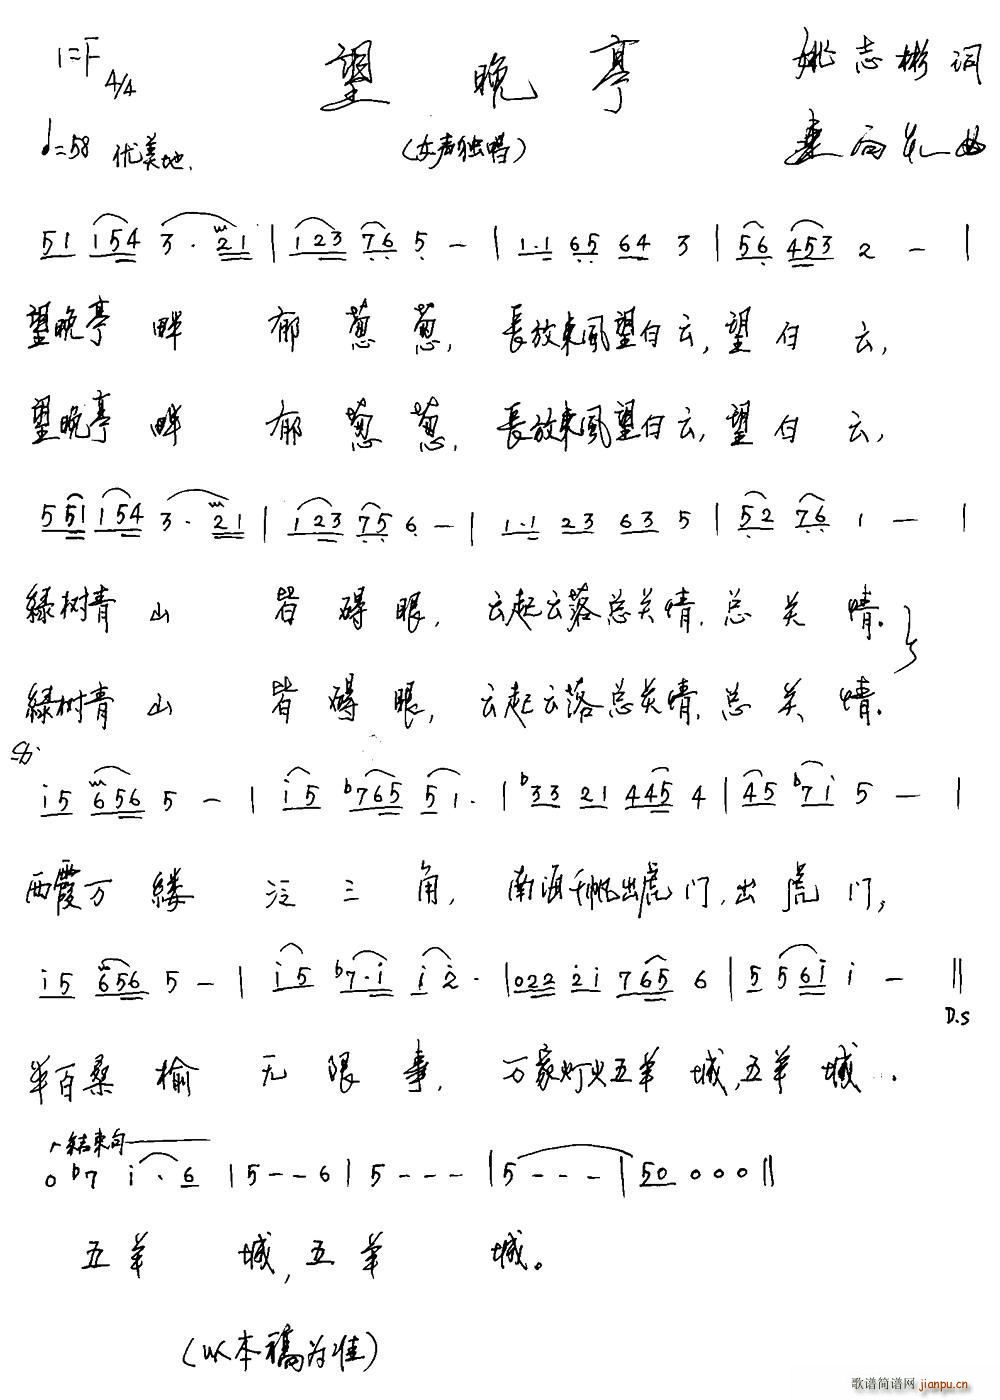 1=F 4/4 望晚亭 姚志彬词
♩=58 优美地. (女声独唱) 曲
51 154 3·21 | 123 76 5 - | 1·1 65 64 3 | 56 453 2 - |
望晚亭 畔 郁葱葱, 長放東風望白云, 望白云,
望晚亭 畔 郁葱葱, 長放東風望白云, 望白云,
551 154 3·21 | 123 75 6 - | 1·1 23 63 5 | 52 76 1 - |
緑树青山 皆碍眼, 云起云落总关情, 总关情.
緑树青山 皆碍眼, 云起云落总关情, 总关情.
i5 656 5 - | i5 b765 51· | b33 21 445 4 | 45 b7i 5 - |
西霞万縷 泛三角, 南海千帆出虎门, 出虎门,
i5 656 5 - | i5 b7·i i2· | 022 2i 765 6 | 5 561 i - ||
D.S
半百桑榆 无限事, 万家灯火五羊城, 五羊城.
结束句
0 b7 i·6 | 5 - - 6 | 5 - - - | 5 - - - | 50 0 0 0 ||
五羊城, 五羊城。
(以本稿为准)
歌谱简谱网
jianpu.cn